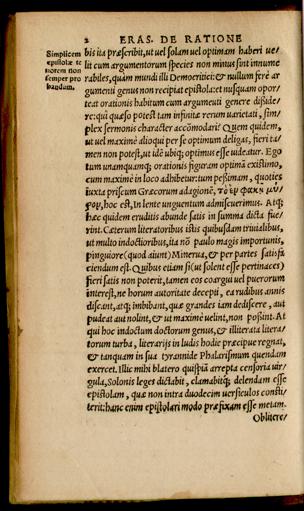 2 ERAS. DE RATIONE
Simplicem
epistolæ te
norem non
semper pro
bandum.
bis ita præscribit, ut uel solam uel optimam haberi ue/
lit cum argumentorum species non minus sint innume
rabiles, quàm mundi illi Democritici: & nullum ferè ar
gumenti genus non recipiat epistola: et nusquam opor
teat orationis habitum cum argumenti genere dißide/
re: quì quæso potest tam infinitæ rerum uarietati, sim/
plex sermonis character accõmodari? Quem quidem,
ut uel maximè alioqui per se optimum deligas, fieri ta/
men non potest, ut idẽ ubiq; optimus esse uideatur. Ego
tum unamquamq; orationis figuram optimã existimo,
cum maximè in loco adhibetur: tum peßimam, quoties
iuxta priscum Græcorum adagionẽ, τὸ ἐν φακῇ μύ/
ρον, hoc est, In lente unguentum admiscuerimus. Atq;
hæc quidem eruditis abunde satis in summa dicta fue/
rint. Cæterum literatoribus istis quibusdam triuialibus,
ut multo indoctioribus, ita nõ paulo magis importunis,
pinguiore (quod aiunt) Minerua, & per partes satisfa
ciendum est. Quibus etiam si (ut solent esse pertinaces)
fieri satis non poterit, tamen eos coargui uel puerorum
interest, ne horum autoritate decepti, ea rudibus annis
discant, atq; imbibant, quæ grandes iam dediscere, aut
pudeat aut nolint, & ut maximè uelint, non poßint. At
qui hoc indoctum doctorum genus, & illiterata litera/
torum turba, literarijs in ludis hodie præcipue regnat,
& tanquam in sua tyrannide Phalarismum quendam
exercet. Illic mihi blatero quispiã arrepta censoria uir/
gula, Solonis leges dictabit, clamabitq; delendam esse
epistolam, quæ non intra duodecim uersiculos consti/
terit: hanc enim epistolari modo præfixam esse metam.
Oblitere/